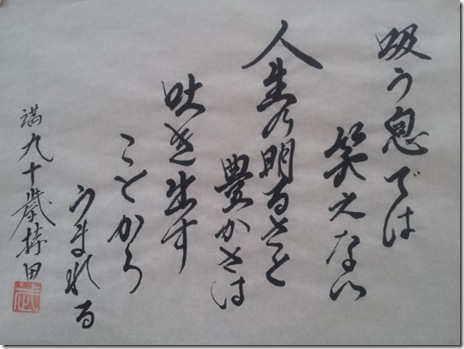 吸う息では
笑えない
人生の明るさと
豊かさは
吐き出す
ことから
うまれる
満九十歳持田